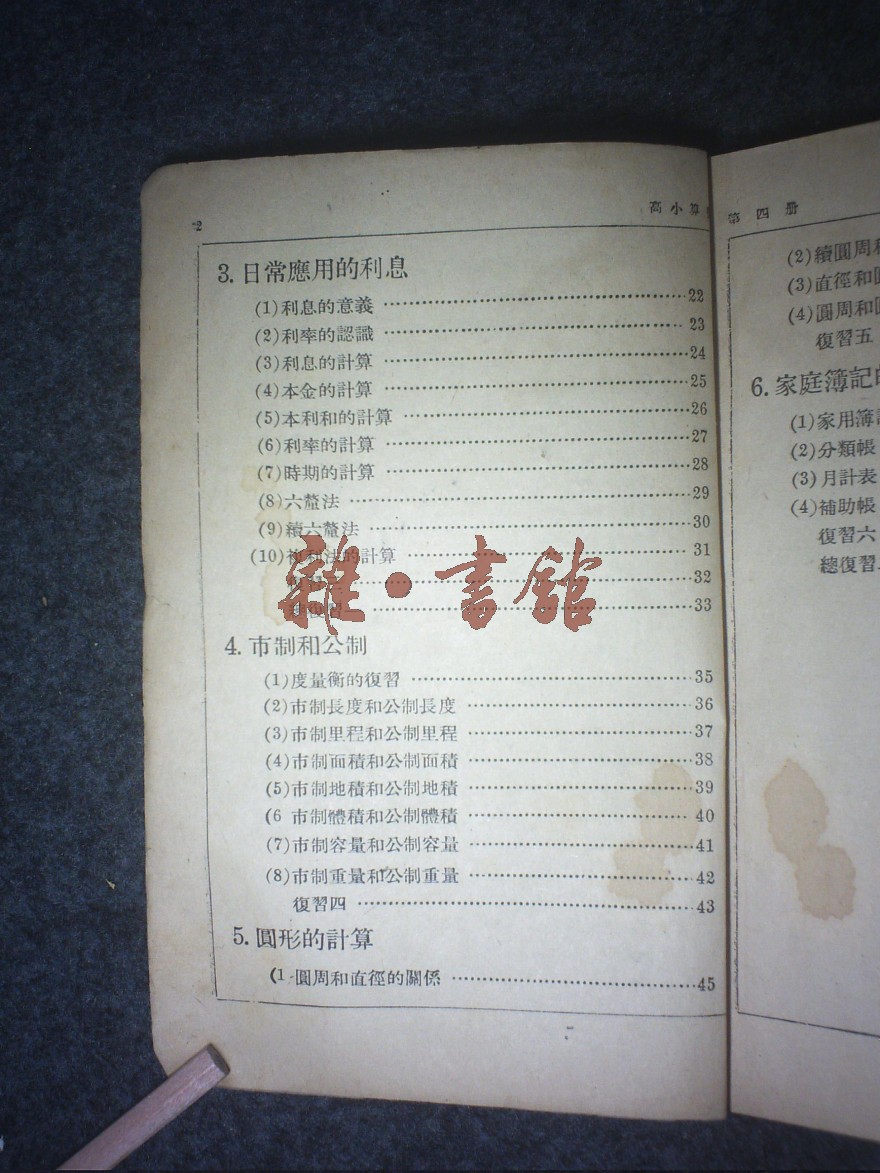 2
高小算
3.日常應用的利息
(1)利息的意義 22
(2)利率的認識 23
(3)利息的計算 24
(4)本金的計算 25
(5)本利和的計算 26
(6)利率的計算 27
(7)時期的計算 28
(8)六釐法 29
(9)續六釐法 30
(10)複利法的計算 31
復習 32
總復習 33
雜·書館
4.市制和公制
(1)度量衡的復習 35
(2)市制長度和公制長度 36
(3)市制里程和公制里程 37
(4)市制面積和公制面積 38
(5)市制地積和公制地積 39
(6 市制體積和公制體積 40
(7)市制容量和公制容量 41
(8)市制重量和公制重量 42
復習四 43
5.圓形的計算
(1 圓周和直徑的關係 45
第四册
(2)續圓周
(3)直徑和
(4)圓周和
復習五
6.家庭簿記
(1)家用簿
(2)分類帳
(3)月計表
(4)補助帳
復習六
總復習